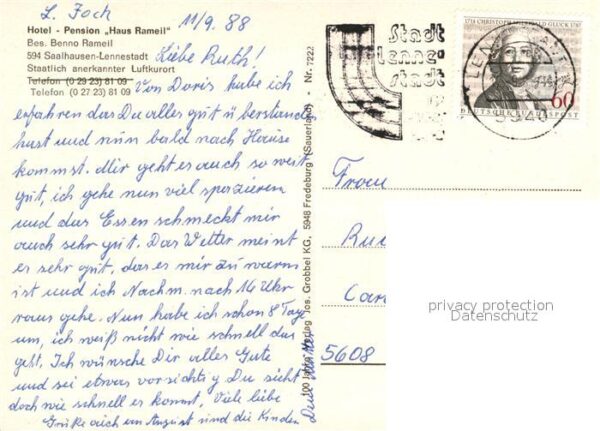 L. Foch
11/9. 88
Hotel - Pension „Haus Rameil"
Bes. Benno Rameil
594 Saalhausen-Lennestadt
Staatlich anerkannter Luftkurort
Telefon (0 28 23) 81 09
Telefon (0 27 23) 81 09
Liebe Ruth!
Von Doris habe ich
erfahren das Du alles gut ü berstanden
hast und nun bald nach Hause
kommst. Mir geht es auch so weit
gut, ich gehe nun viel spazieren
und das Essen schmeckt mir
auch sehr gut. Das Wetter meint
es sehr gut, das es mir zu warm
ist und ich Nachm. nach 16 Uhr
raus gehe. Nun habe ich schon 8 Tage
um, ich weiß nicht wie schnell das
geht. Ich wünsche Dir alles Gute
und sei etwas vorsichtig Du siehst
doch wie schnell es kommt, Viele liebe
Grüße auch an August und die Kinder
Nr. 7222
100 Jahre Verlag Jos. Grobbel KG, 5948 Fredeburg (Sauerland)
Stadt
Lenne
stadt
1714 CHRISTOPH WILLIBALD GLUCK 1787
60
DEUTSCHE BUNDESPOST
Frau
5608
privacy protection
Datenschutz